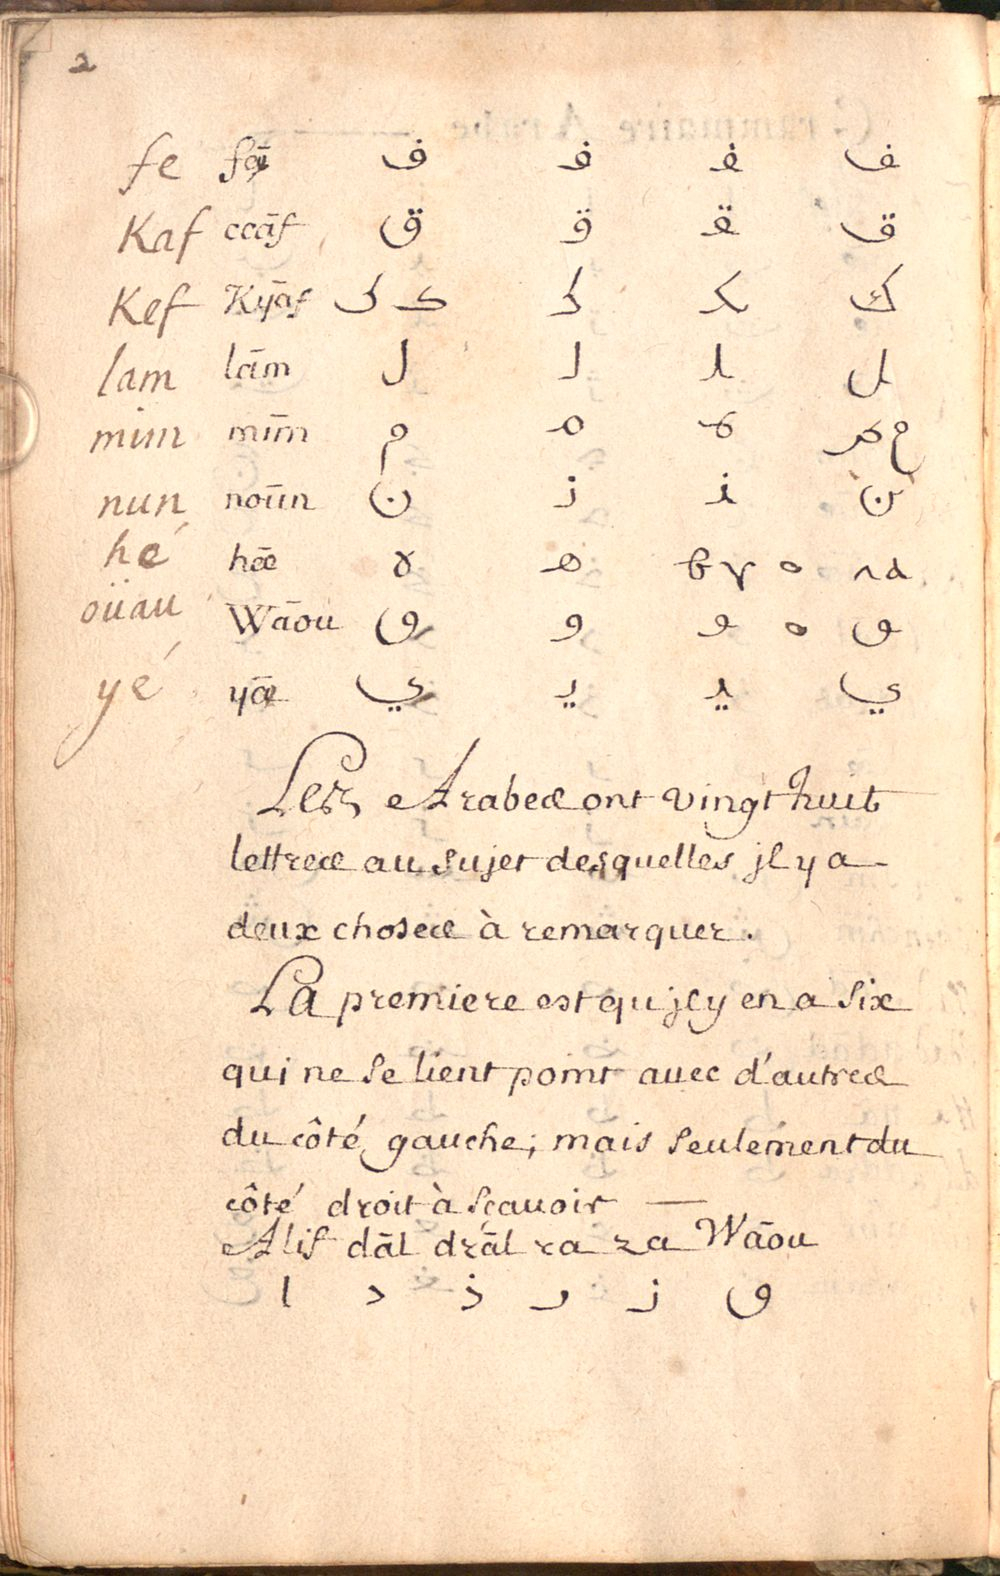 2
fe fāe ف ف ف ف
Kaf ccāf ق ق ق ق
Kef Kyāf ك ك ك ك ك
lam lām ل ل ل ل
mim mīm م م م م م
nun noūn ن ن ن ن
hé hāe ه ه ه ه ه ه ه
oüau Wāou و و و و
yé yāe ي ي ي ي
Les Arabes ont vingt huit
lettres au sujet desquelles jl y a
deux choses à remarquer.
La premiere est qu'jl y en a six
qui ne se lient point avec d'autres
du côté gauche; mais seulement du
côté droit à sçavoir —
Alif dāl dzāl ra za Wāou
ا د ذ ر ز و